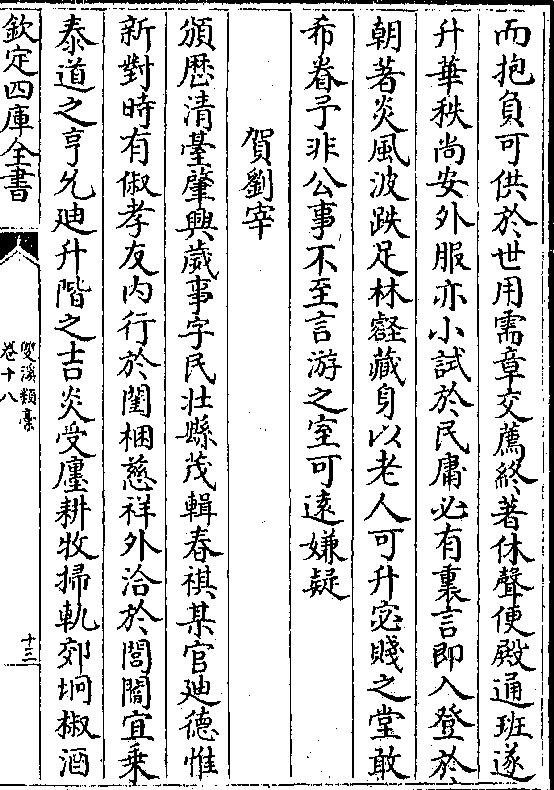 而抱負可供於世用需章交薦終著休聲便殿通班遂
升華秩尚安外服亦小試於民庸必有裏言即入登於
朝著炎風波跌足林壑藏身以老人可升宓賤之堂敢
希眷予非公事不至言游之室可遠嫌疑
賀劉宰
頒歴清臺肇興歲事字民壯縣茂輯春祺某官廸德惟
新對時有俶孝友内行於閨梱慈祥外洽於閭閻宜乗
泰道之亨允廸升階之吉炎受廛耕牧掃軌郊坰椒酒
欽定四庫全書
雙溪類稾
卷十八
十三